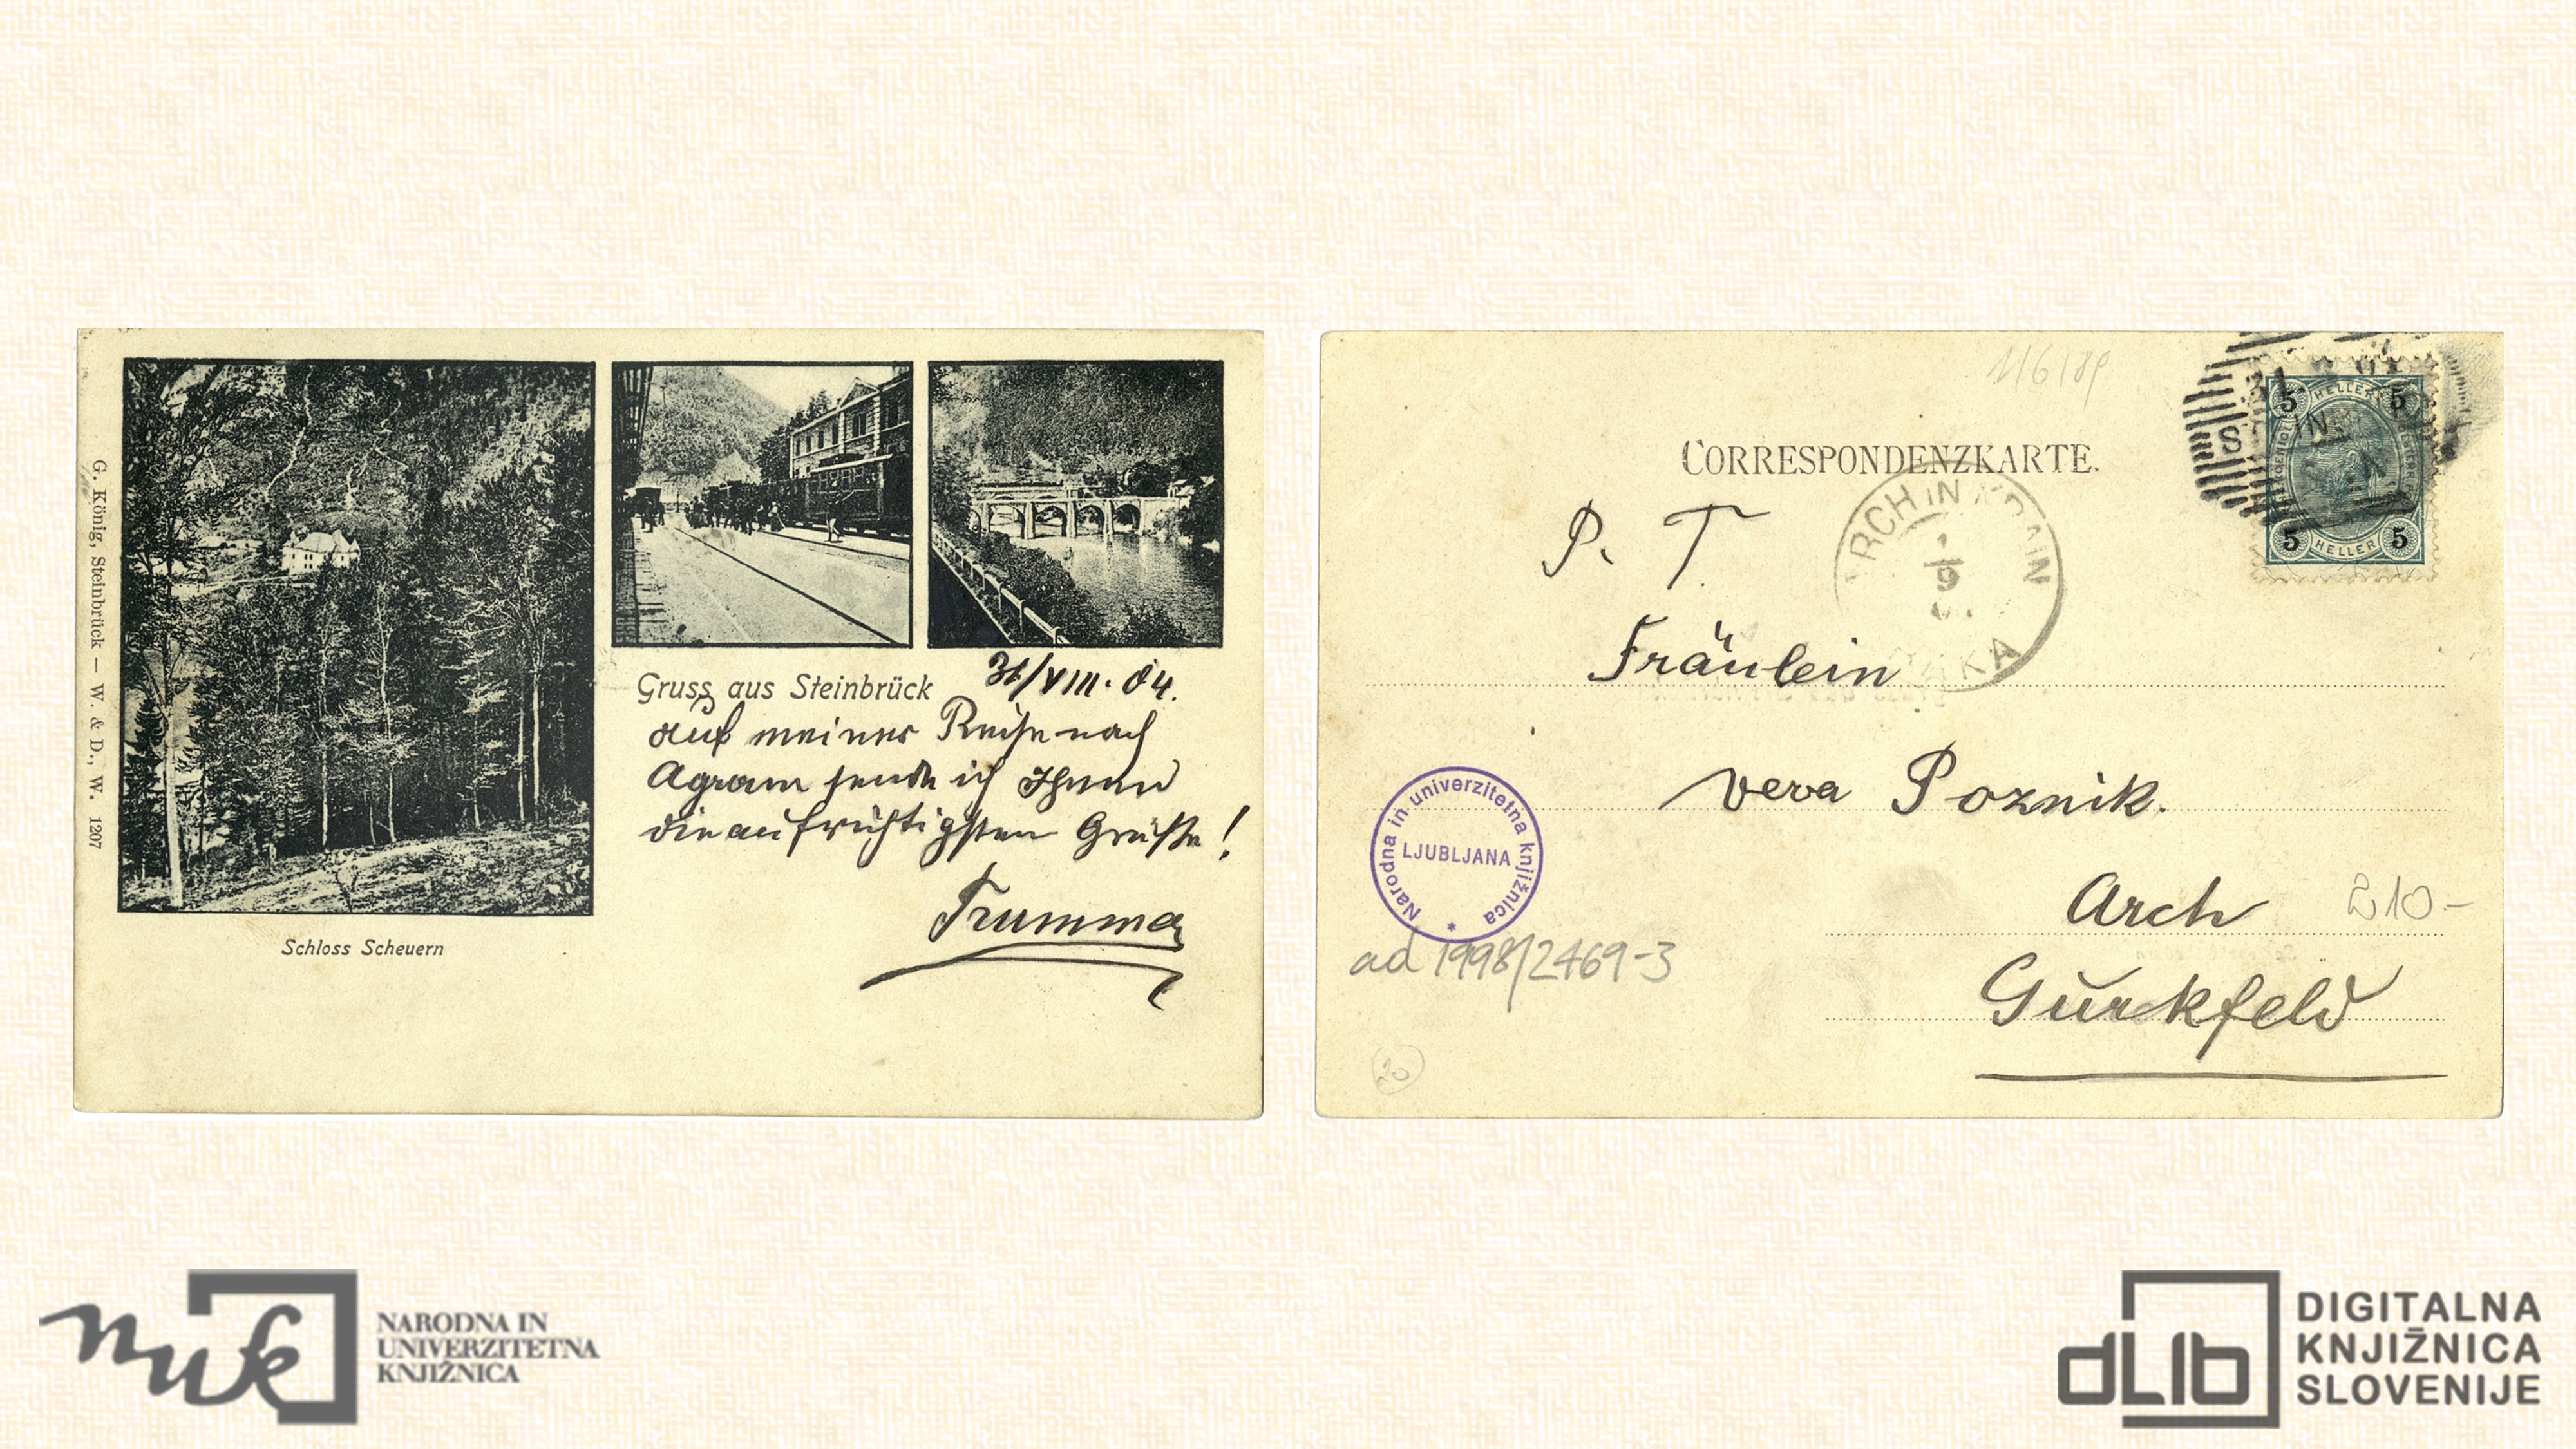 G. König, Steinbrück — W. & D., W. 1207
Gruss aus Steinbrück 31/VIII. 04.
auf meiner Reise nach
Agram sende ich Ihnen
die aufrichtigsten Grüße!
Trumma
Schloss Scheuern
CORRESPONDENZKARTE.
5 HELLER 5
5 HELLER 5
RCH IN KRAIN
P. T
Fräulein
Vera Poznik.
Arch
Gurkfeld
210-
Narodna in univerzitetna knjižnica
LJUBLJANA
ad 1998/2469-3
20
nuk
NARODNA IN
UNIVERZITETNA
KNJIŽNICA
dLIb
DIGITALNA
KNJIŽNICA
SLOVENIJE